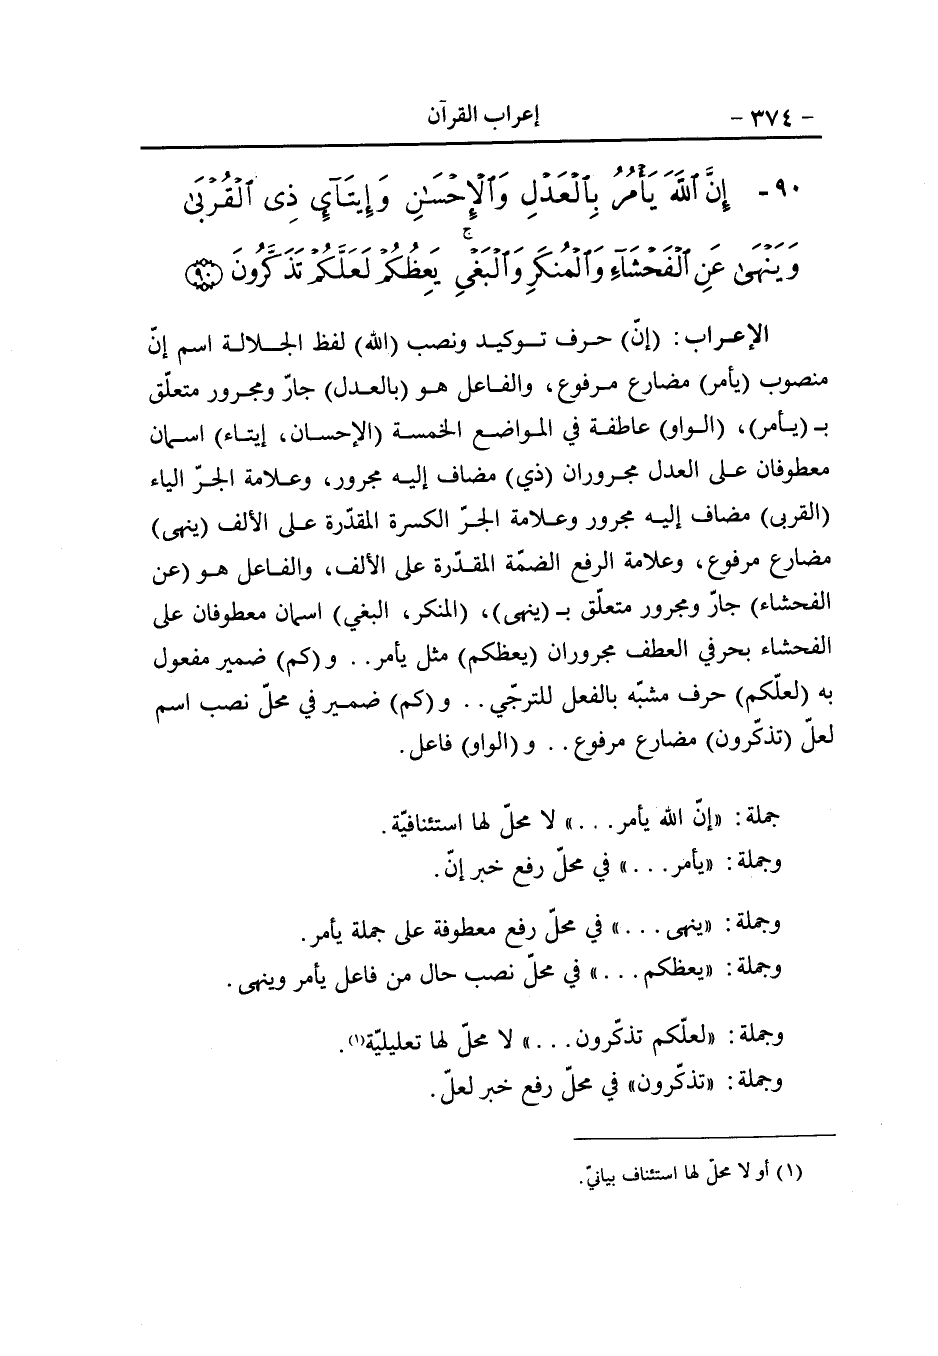 - ٣٧٤ - إعراب القرآن
٩٠- إِنَّ ٱللَّهَ يَأْمُرُ بِٱلْعَدْلِ وَٱلْإِحْسَٰنِ وَإِيتَآئِ ذِى ٱلْقُرْبَىٰ
وَيَنْهَىٰ عَنِ ٱلْفَحْشَآءِ وَٱلْمُنكَرِ وَٱلْبَغْىِ ۚ يَعِظُكُمْ لَعَلَّكُمْ تَذَكَّرُونَ ﴿٩٠﴾
الإعراب: (إنّ) حرف توكيد ونصب (الله) لفظ الجلالة اسم إنّ
منصوب (يأمر) مضارع مرفوع، والفاعل هو (بالعدل) جارّ ومجرور متعلّق
بـ (يأمر)، (الواو) عاطفة في المواضع الخمسة (الإحسان، إيتاء) اسمان
معطوفان على العدل مجروران (ذي) مضاف إليه مجرور، وعلامة الجرّ الياء
(القربى) مضاف إليه مجرور وعلامة الجرّ الكسرة المقدّرة على الألف (ينهى)
مضارع مرفوع، وعلامة الرفع الضمّة المقدّرة على الألف، والفاعل هو (عن
الفحشاء) جارّ ومجرور متعلّق بـ (ينهى)، (المنكر، البغي) اسمان معطوفان على
الفحشاء بحرفي العطف مجروران (يعظكم) مثل يأمر.. و(كم) ضمير مفعول
به (لعلّكم) حرف مشبّه بالفعل للترجّي.. و(كم) ضمير في محلّ نصب اسم
لعلّ (تذكّرون) مضارع مرفوع.. و(الواو) فاعل.
جملة: «إنّ الله يأمر...» لا محلّ لها استئنافيّة.
وجملة: «يأمر...» في محلّ رفع خبر إنّ.
وجملة: «ينهى...» في محلّ رفع معطوفة على جملة يأمر.
وجملة: «يعظكم...» في محلّ نصب حال من فاعل يأمر وينهى.
وجملة: «لعلّكم تذكّرون...» لا محلّ لها تعليليّة(١).
وجملة: «تذكّرون» في محلّ رفع خبر لعلّ.
(١) أو لا محلّ لها استئناف بيانيّ.